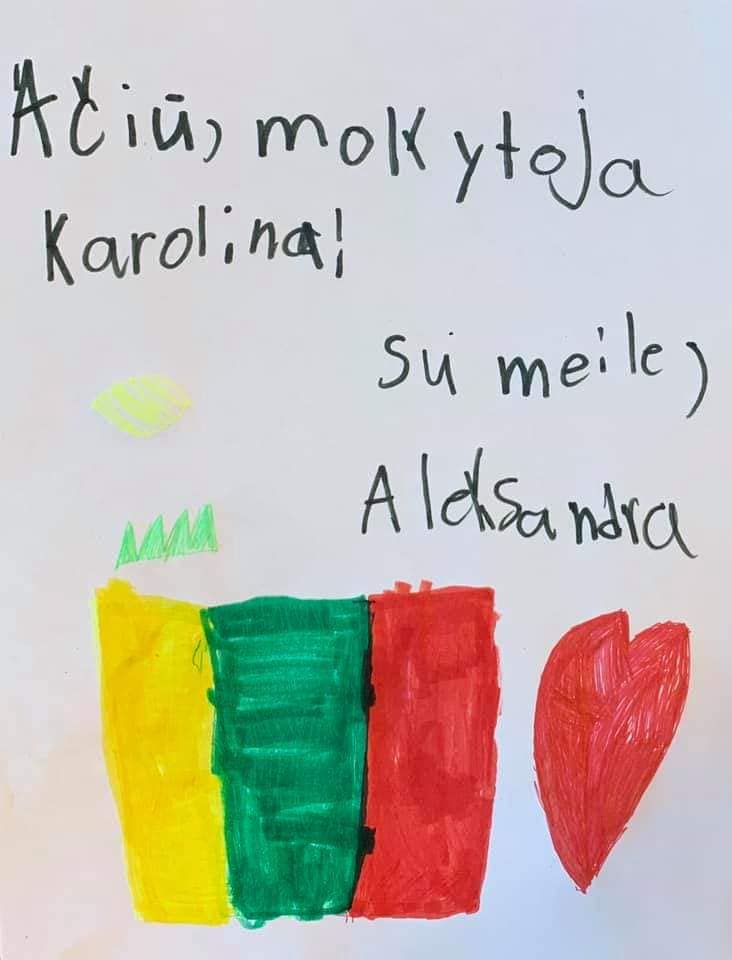 Ačiū, mokytoja
Karolina!
su meile,
Aleksandra